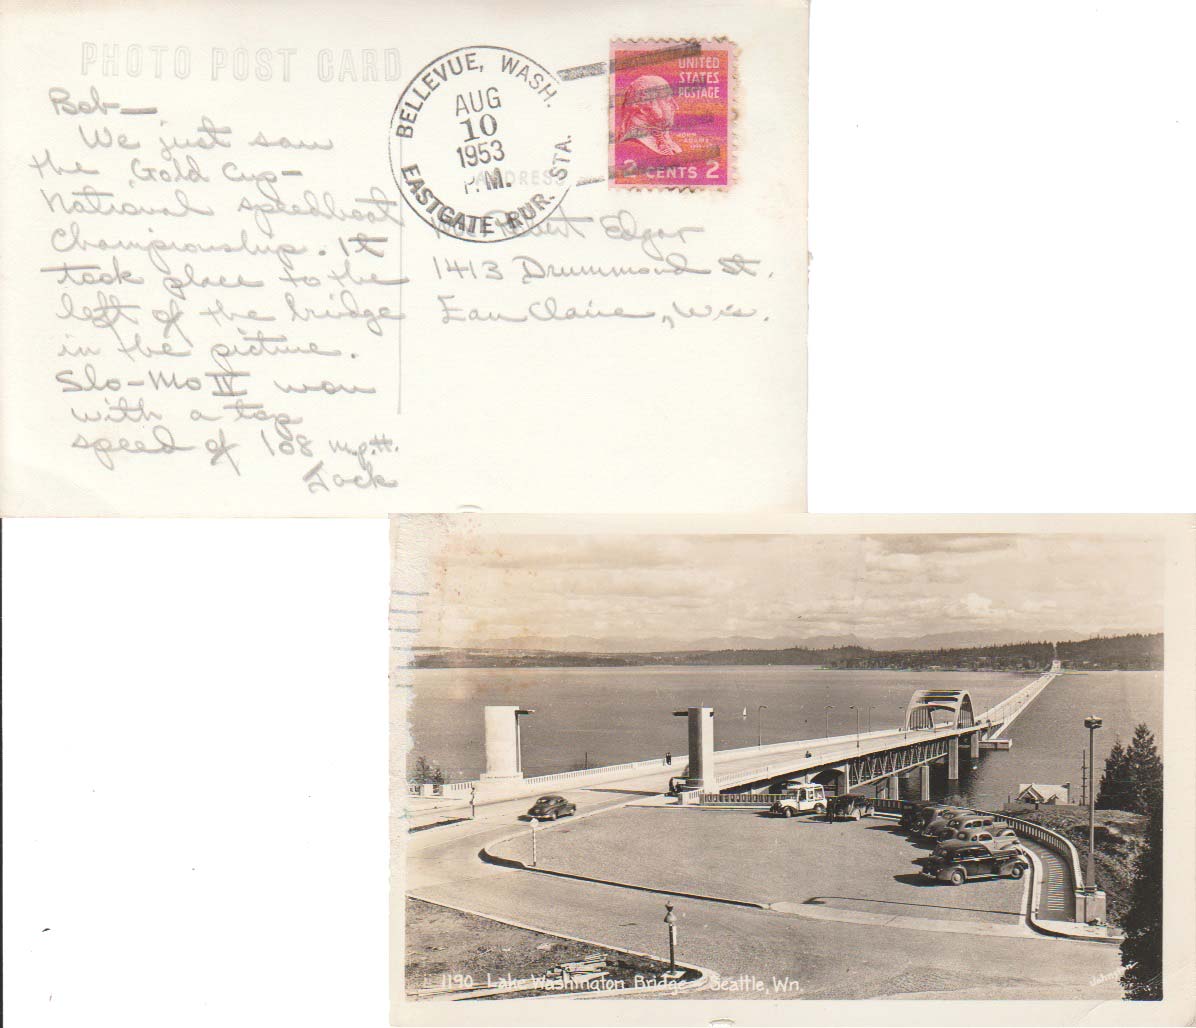 PHOTO POST CARD
BELLEVUE, WASH.
AUG
10
1953
P.M.
EASTGATE RUR. STA.
UNITED
STATES
POSTAGE
JOHN
ADAMS
2 CENTS 2
ADDRESS
Bob—
We just saw
the Gold Cup—
National speedboat
Championship. It
took place to the
left of the bridge
in the picture.
Slo-Mo IV won
with a top
speed of 108 m.p.H.
Jack
Robert Edgar
1413 Drummond St.
Eau Claire, Wis.
1190 Lake Washington Bridge - Seattle, Wn.